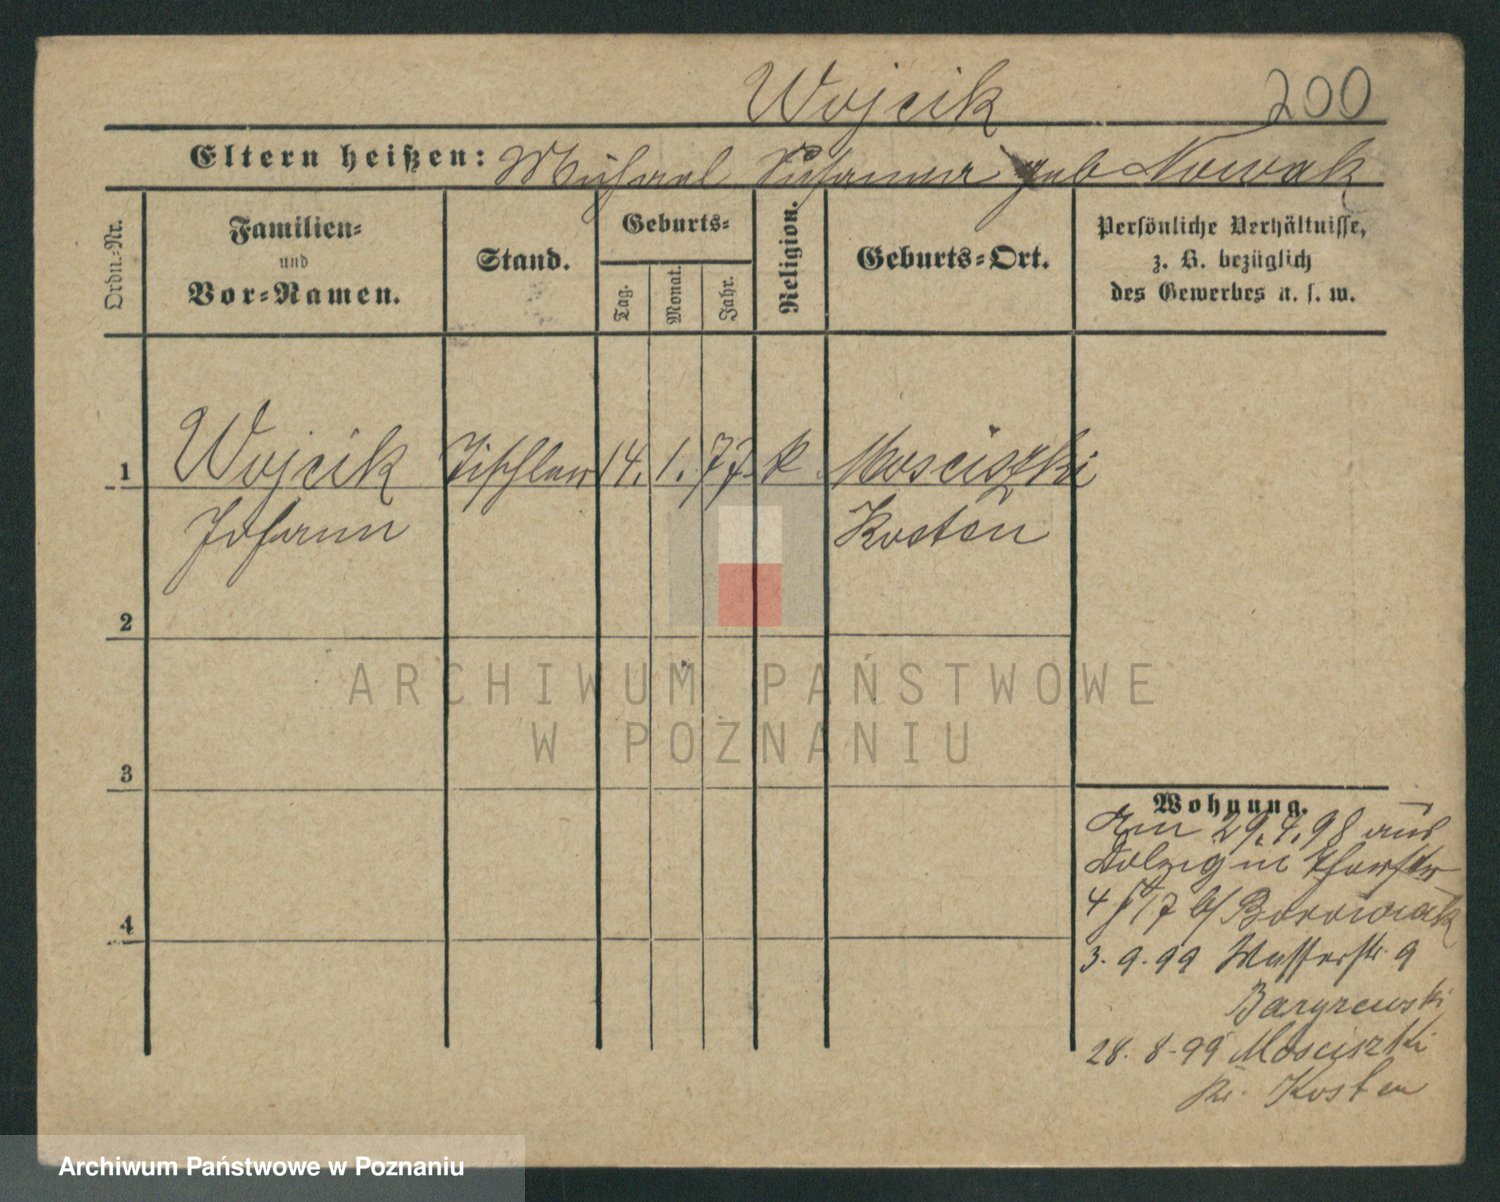 Wojcik 200
Eltern heißen: Michael Susanna geb Nowak
Ordn.-Nr.
Familien-
und
Vor-Namen.
Stand.
Geburts-
Tag.
Monat.
Jahr.
Religion.
Geburts-Ort.
Persönliche Verhältnisse,
z. B. bezüglich
des Gewerbes u. s. w.
1 Wojcik Tischler 14. 1. 77. k Mosciszki
Johann Kosten
2
3
4
Wohnung.
Am 29.4.98 aus
Dolzig in
4 17 b/ Borowiak
3. 9. 99 Wasserstr. 9
28. 8. 99 Mosciszki
Kr. Kosten
ARCHIWUM PAŃSTWOWE
W POZNANIU
Archiwum Państwowe w Poznaniu